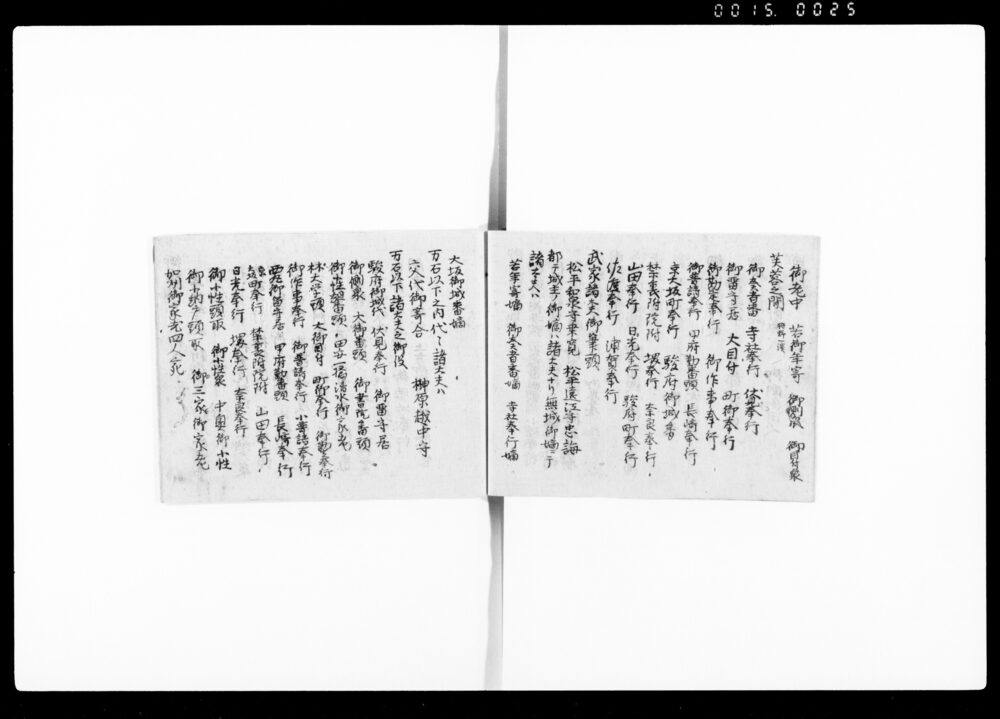 0015. 0025
御老中 若御年寄 御側衆 御目付衆
芙蓉之間
御奏者番 寺社奉行 伏見奉行
御留守居 大目付 町御奉行
御勘定奉行 御作事奉行
御普請奉行 甲府勤番頭 長崎奉行
京大坂町奉行 駿府御城番
禁裏附院附 堺奉行 奈良奉行
山田奉行 日光奉行 駿府町奉行
佐渡奉行 浦賀奉行
武家諸大夫御葉頭
松平和泉守乗寛 松平遠江守忠誨
都テ城主ノ御嫡ハ諸大夫ナリ無城御嫡ニテ
諸大夫ハ
若年寄嫡 御奏者番嫡 寺社奉行嫡
大坂御城番嫡
万石以下之内代々諸大夫ハ
交代御寄合 榊原越中守
万石以下諸大夫之御役
駿府御城代 伏見奉行 御留守居
御側衆 大御番頭 御書院番頭
御小性組番頭 田安一橋清水御家老
林大学頭 大御目付 町御奉行 御勘定奉行
御作事奉行 御普請奉行 小普請奉行
西丸御留守居 甲府勤番頭 長崎奉行
京大坂町奉行 禁裏附院附 山田奉行
日光奉行 堺奉行 奈良奉行
御小性頭取 御小性衆 中奥御小性
御小納戸頭取 御三家御家老
加州御家老四人究